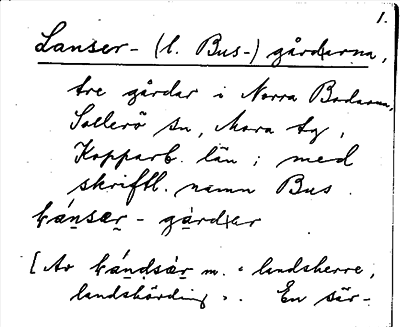 1.
Lanser- (l. Bus-) gårdarna,
tre gårdar i Norra Bodarna,
Sollerö sn, Mora tg,
Kopparb. län; med
skriftl. namn Bus.
lánsęr - gárdęr
[Av lándsę̀r m. "landsherre,
landshövding". En sär-